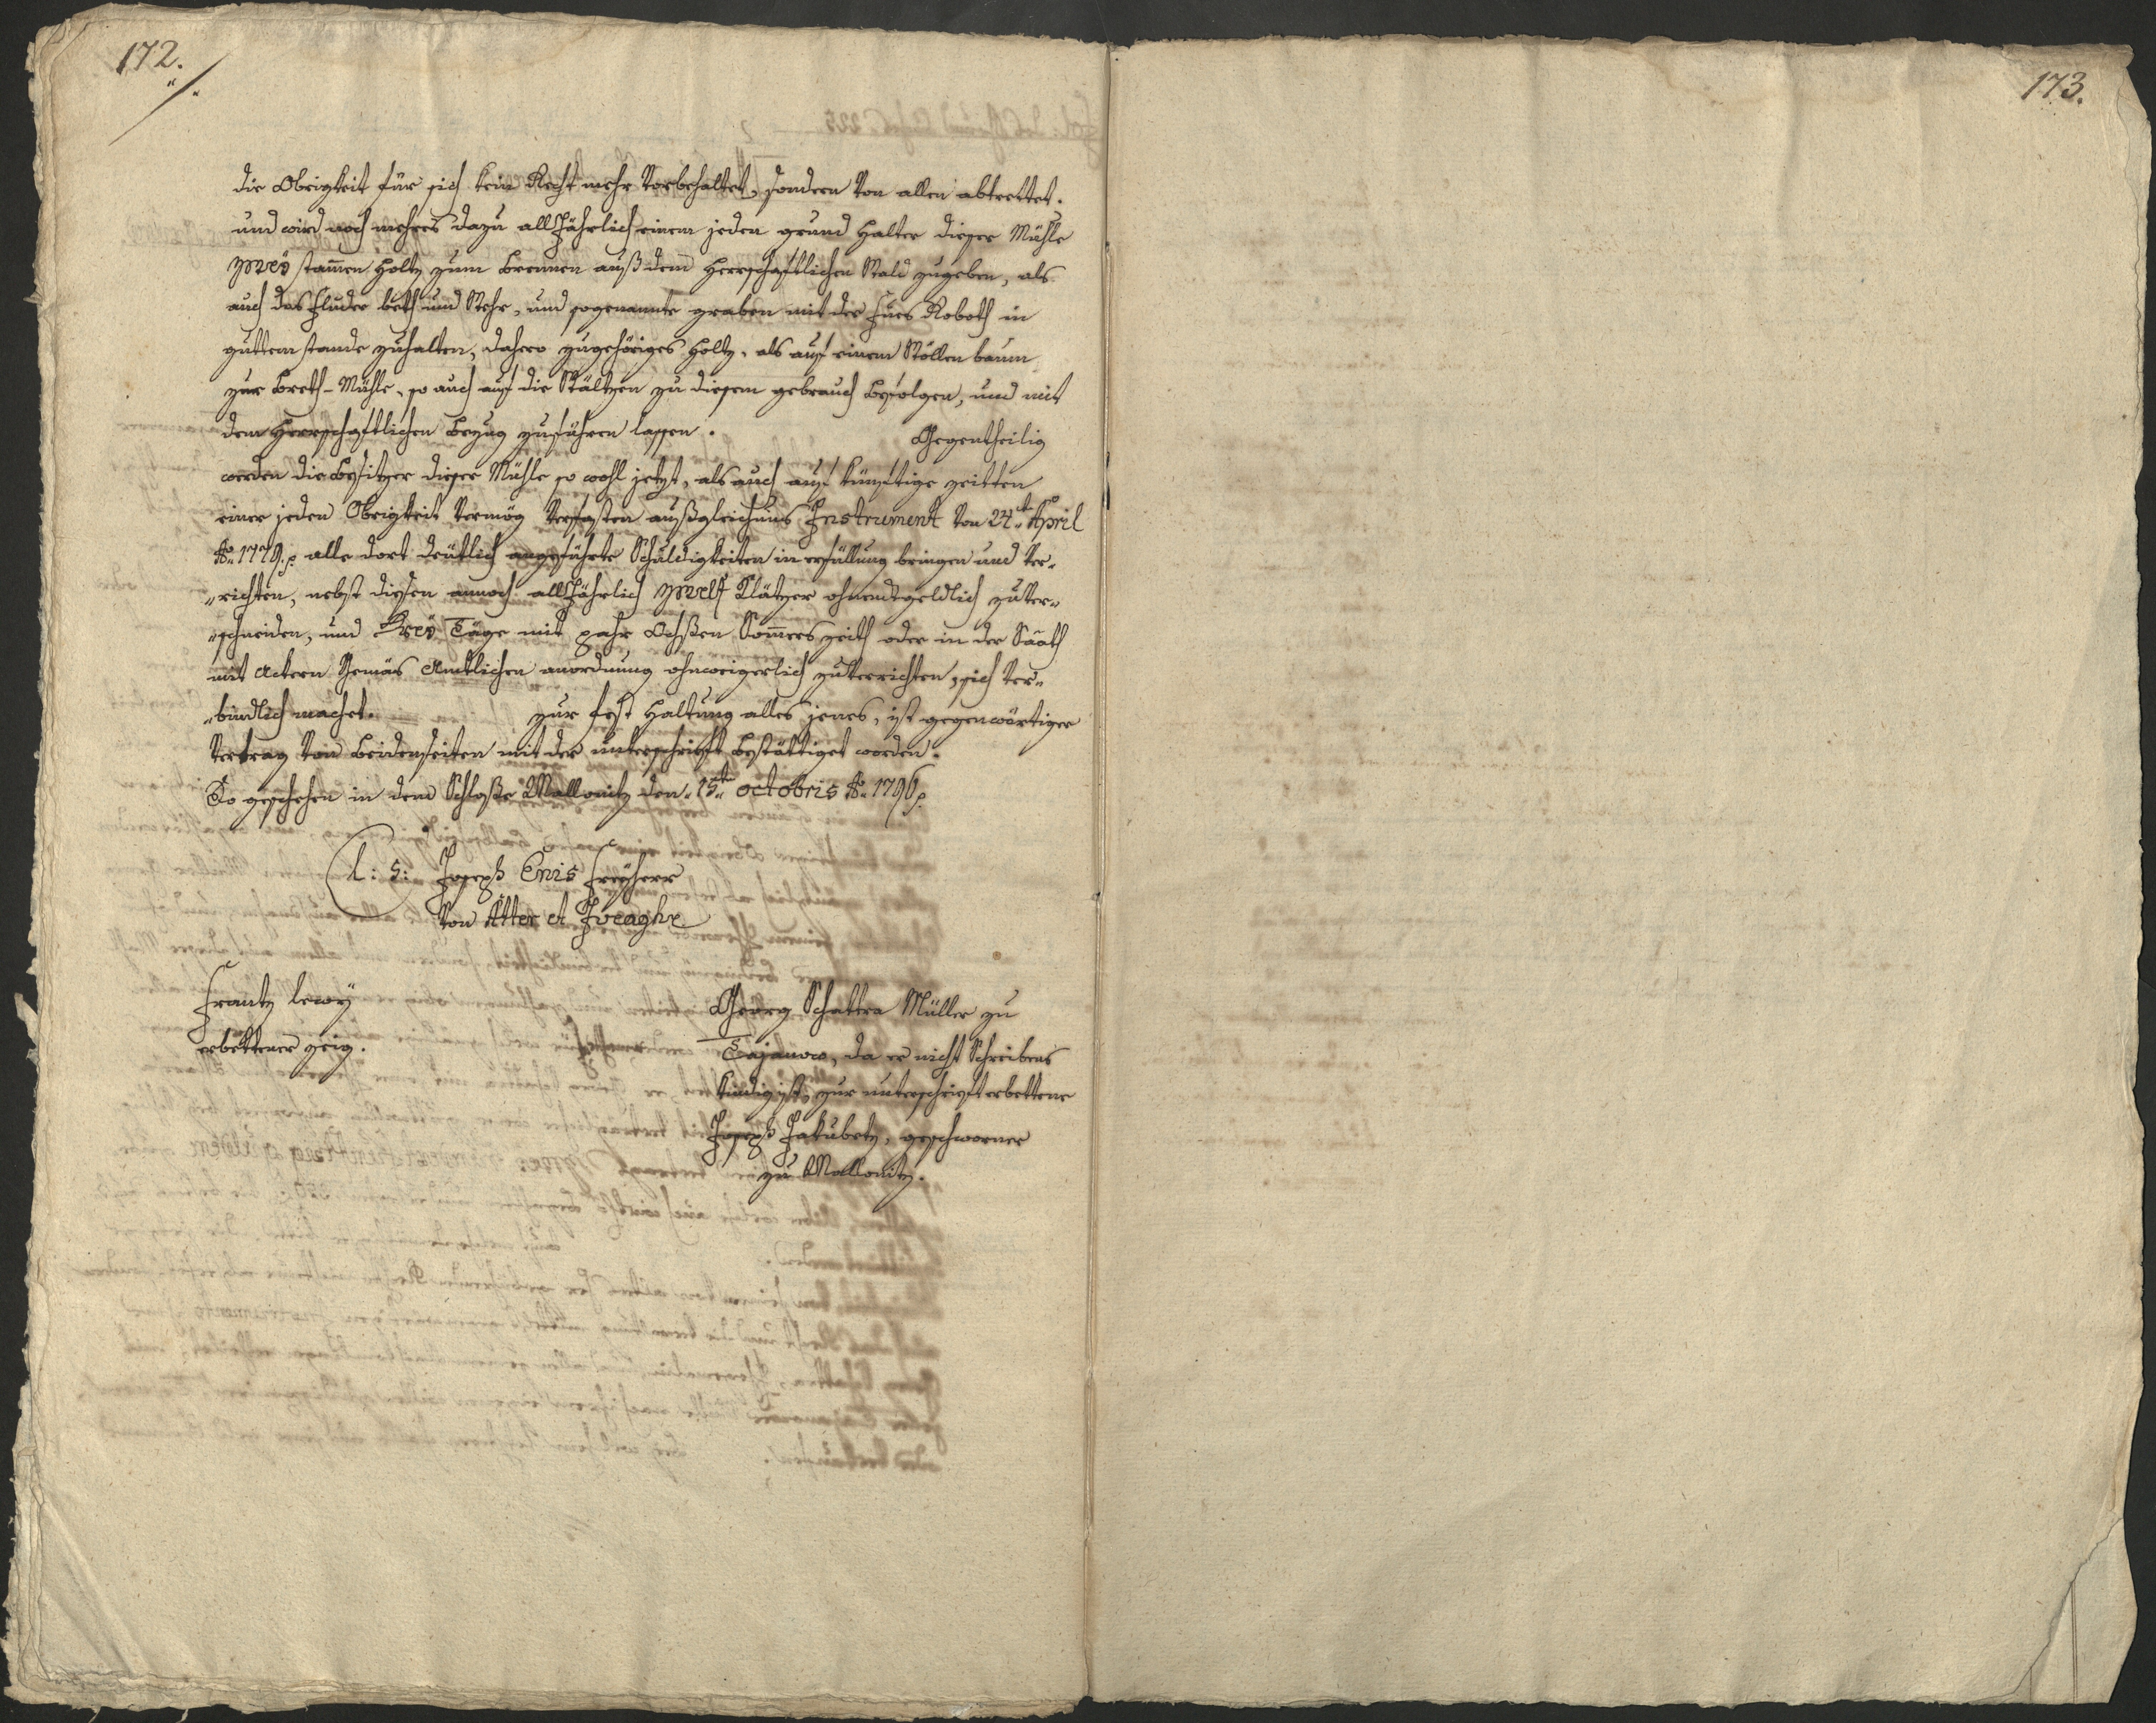 172.
173.
die Obrigkeit für sich kein Recht mehr Vorbehaltet, sondern Von allen abtrettet.
und wird noch mehres dazu allJährlich einem jeden grund Halter dieser Mühle
zweÿ stammen Holtz zum brennen auß dem Herrschaftlichen Wald zugeben, als
auch das Fluder beth und Wehr, und sogenannte graben mit der Fues Roboth in
guttem stande zuhalten, dahero zugehöriges Holtz, als auf einem Wöllen baum
zur Breth-Mühle, so auch auf die Stältzen zu diesem gebrauch befolgen, und mit
dem Herrschaftlichen bezug zuführen lassen. Gegentheilig
werden die besitzer dieser Mühle so wohl jetzt, als auch auf künftige zeitten
einer jeden Obrigkeit Vermög Verfasten außgleichuns Instrument Von 24ten April
Ao 1779. alle dort deütlich angeführte Schuldigkeiten in erfüllung bringen und Ver„
„richten, nebst diesen annoch allJährlich zwelf Klätzer ohnendtgeldlich zuVer„
„schneiden, und Dreÿ Täge mit pahr Ochßen Sommers zeith oder in der Sääth
mit Ackern Gemäs Amtlichen anordnung ohnweigerlich zuVerrichten, sich Ver„
„bindlich machet. zur fest Haltung alles jenes, ist gegenwärtiger
Vertrag Von beidenseiten mit der unterschrift bestättiget worden.
So geschehen in dem Schloße Mallonitz den 15ten octobris Ao 1796.
L: S: Joseph Enis Freÿherr
Von Atter et Iveaghe
Frantz Lewÿ
erbettener zeig.
Georg Schattra Müller zu
Tajanow, da er nicht Schreibens
kündig ist, zur unterschrift erbettene
Joseph Jakubetz, geschworner
zu Mallonitz.